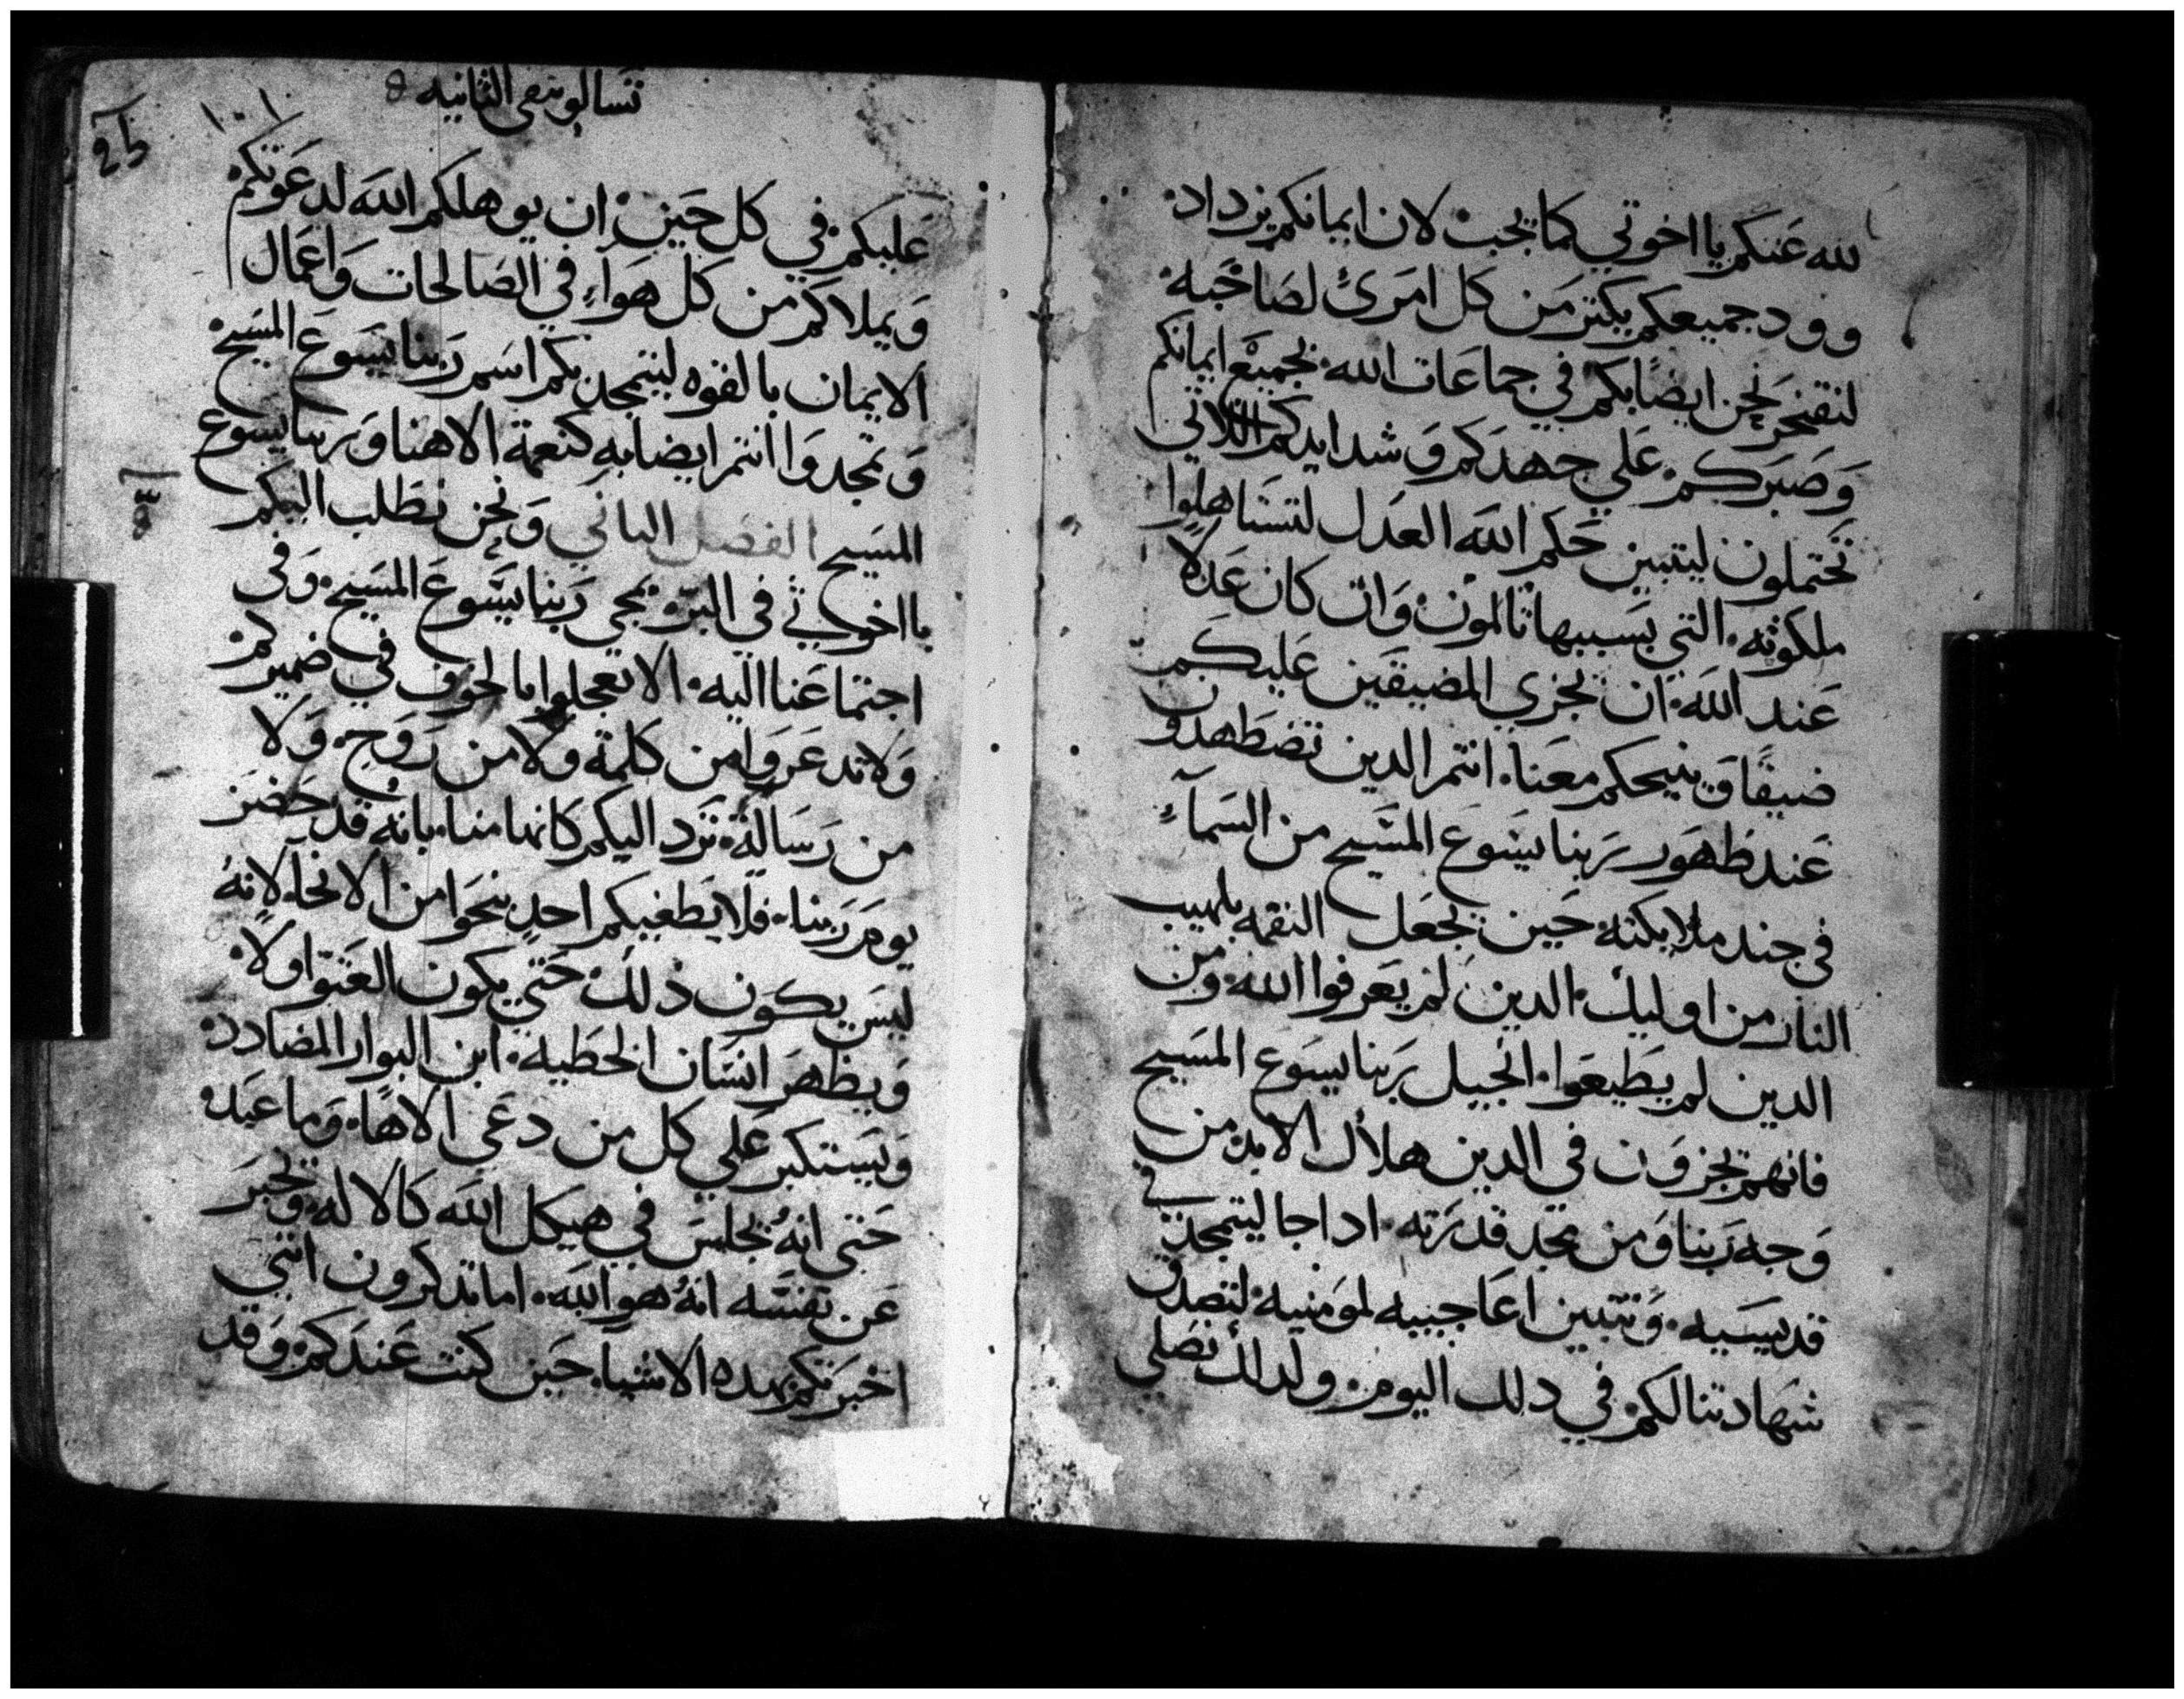 لله عنكم يا اخوتي كما يجب لان ايمانكم يزداد
وود جميعكم يكتر من كل امرئ لصاحبه
لنفتخر نحن ايضا بكم في جماعات الله بجميع ايمانكم
وصبركم علي جهدكم وشدايدكم اللاتي
تحتملون ليتبين حكم الله العدل لتستاهلوا
ملكوته التي بسببها تالمون وان كان عدلا
عند الله ان يجزي المضيقين عليكم
ضيقا وينيحكم معنا انتم الدين تضطهدون
عند ظهور ربنا يسوع المسيح من السماء
في جند ملايكته حين يجعل النقمه بلهيب
النار من اوليك الدين لم يعرفوا الله ومن
الدين لم يطيعوا انجيل ربنا يسوع المسيح
فانهم يجزون في الدين هلاك الابد من
وجه ربنا ومن مجد قدرته ادا جا ليتمجد في
قديسيه وتتبين اعاجيبه لمومنيه لتصدق
شهادتنا لكم في دلك اليوم ولدلك نصلي
تسالونيقي الثانيه
١٠١
عليكم في كل حين ان يوهلكم الله لدعوتكم
ويملاكم من كل هواء في الصالحات واعمال
الايمان بالقوه ليتمجد بكم اسم ربنا يسوع المسيح
وتمجدوا انتم ايضا به كنعمة الاهنا وربنا يسوع
المسيح الفصل التاني ونحن نطلب اليكم
يا اخوتي في البر بمجي ربنا يسوع المسيح وفي
اجتماعنا اليه الا تعجلوا بالخوف في ضميركم
ولا تدعروا من كلمة ولا من روح ولا
من رسالة ترد اليكم كانها منا بانه قد حضر
يوم ربنا فلا يطغيكم احد بنحو من الانحا لانه
ليس يكون ذلك حتي يكون العتو اولا
ويظهر انسان الخطيه ابن البوار المضادد
ويستكبر علي كل من دعي الاها وما عبد
حتي انه يجلس في هيكل الله كالاله ويخبر
عن نفسه انه هو الله اما تدكرون انني
اخبرتكم بهده الاشيا حين كنت عندكم وقد